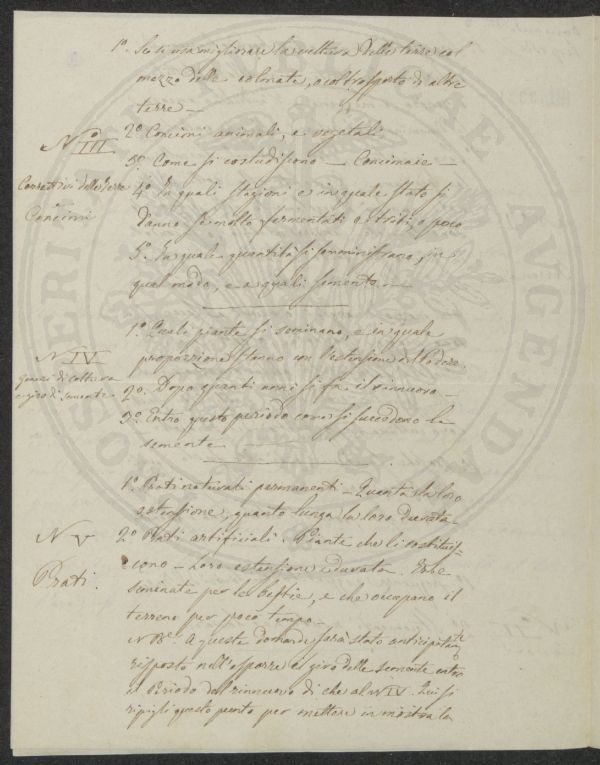 1º. Se si usa migliorare la coltura delle terre col
mezzo delle colmate, o col trasporto di altre
terre —
Nº III
Correttivi delle Terre
e
Concimi
2º. Concimi animali, e vegetali
3º. Come si custodiscono — Concimaie —
4º. In quali stagioni e in quale stato si
danno se molto fermentati o triti, o poco
5º. In quale quantità si somministrano, in
qual modo, e a quali semente —
N IV
Generi di coltura
e giro di semente
1º. Quali piante si seminano, e in quale
proporzione stanno con l'estensione del Podere.
2º. Dopo quanti anni si fa il rinnuovo —
3º. Entro questo periodo come si succedono le
semente
N V
Prati.
1º. Prati naturali permanenti — Quanta la loro
estensione, quanto lunga la loro durata —
2º. Prati artificiali. Piante che li costituis-
cono — Loro estensione e durata. Erbe
seminate per le bestie, e che occupano il
terreno per poco tempo —
NBº. A queste domande sarà stato anticipatamte
risposto nell'esporre il giro delle semente entro
il Periodo del rinnuovo di che al N IV. Qui si
ripigli questo punto per mettere in mostra la